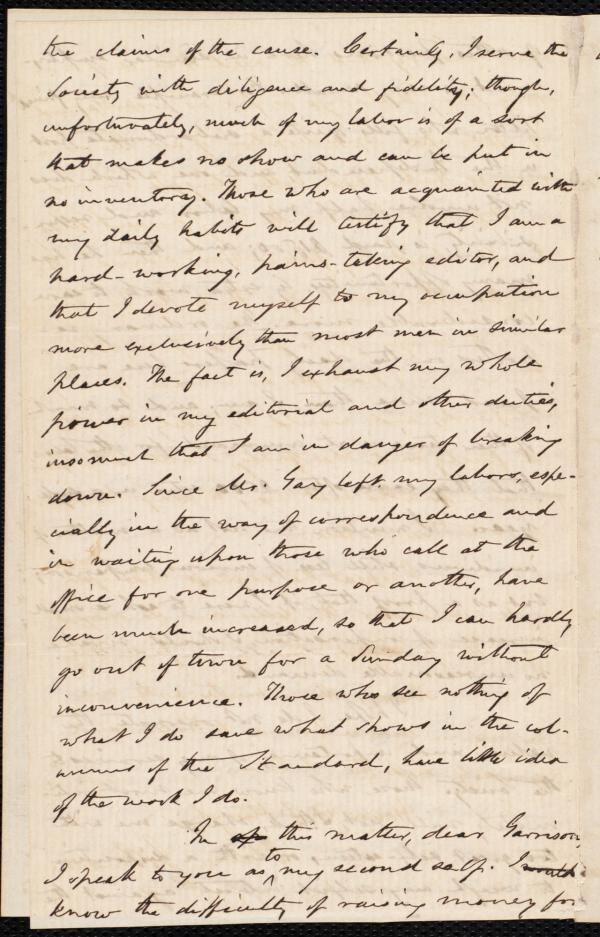 the claims of the cause. Certainly, I serve the
Society with diligence and fidelity; though,
unfortunately, much of my labor is of a sort
that makes no show and can be put in
no inventory. Those who are acquainted with
my daily habits will testify that I am a
hard-working, pains-taking editor, and
that I devote myself to my occupation
more exclusively than most men in similar
places. The fact is, I exhaust my whole
power in my editorial and other duties,
insomuch that I am in danger of breaking
down. Since Mr. Gay left, my labors, espe-
cially in the way of correspondence and
in waiting upon those who call at the
office for one purpose or another, have
been much increased, so that I can hardly
go out of town for a Sunday without
inconvenience. Those who see nothing of
what I do save what shows in the col-
umns of the Standard, have little idea
of the work I do.
In this matter, dear Garrison,
I speak to you as to my second self. I
know the difficulty of raising money for